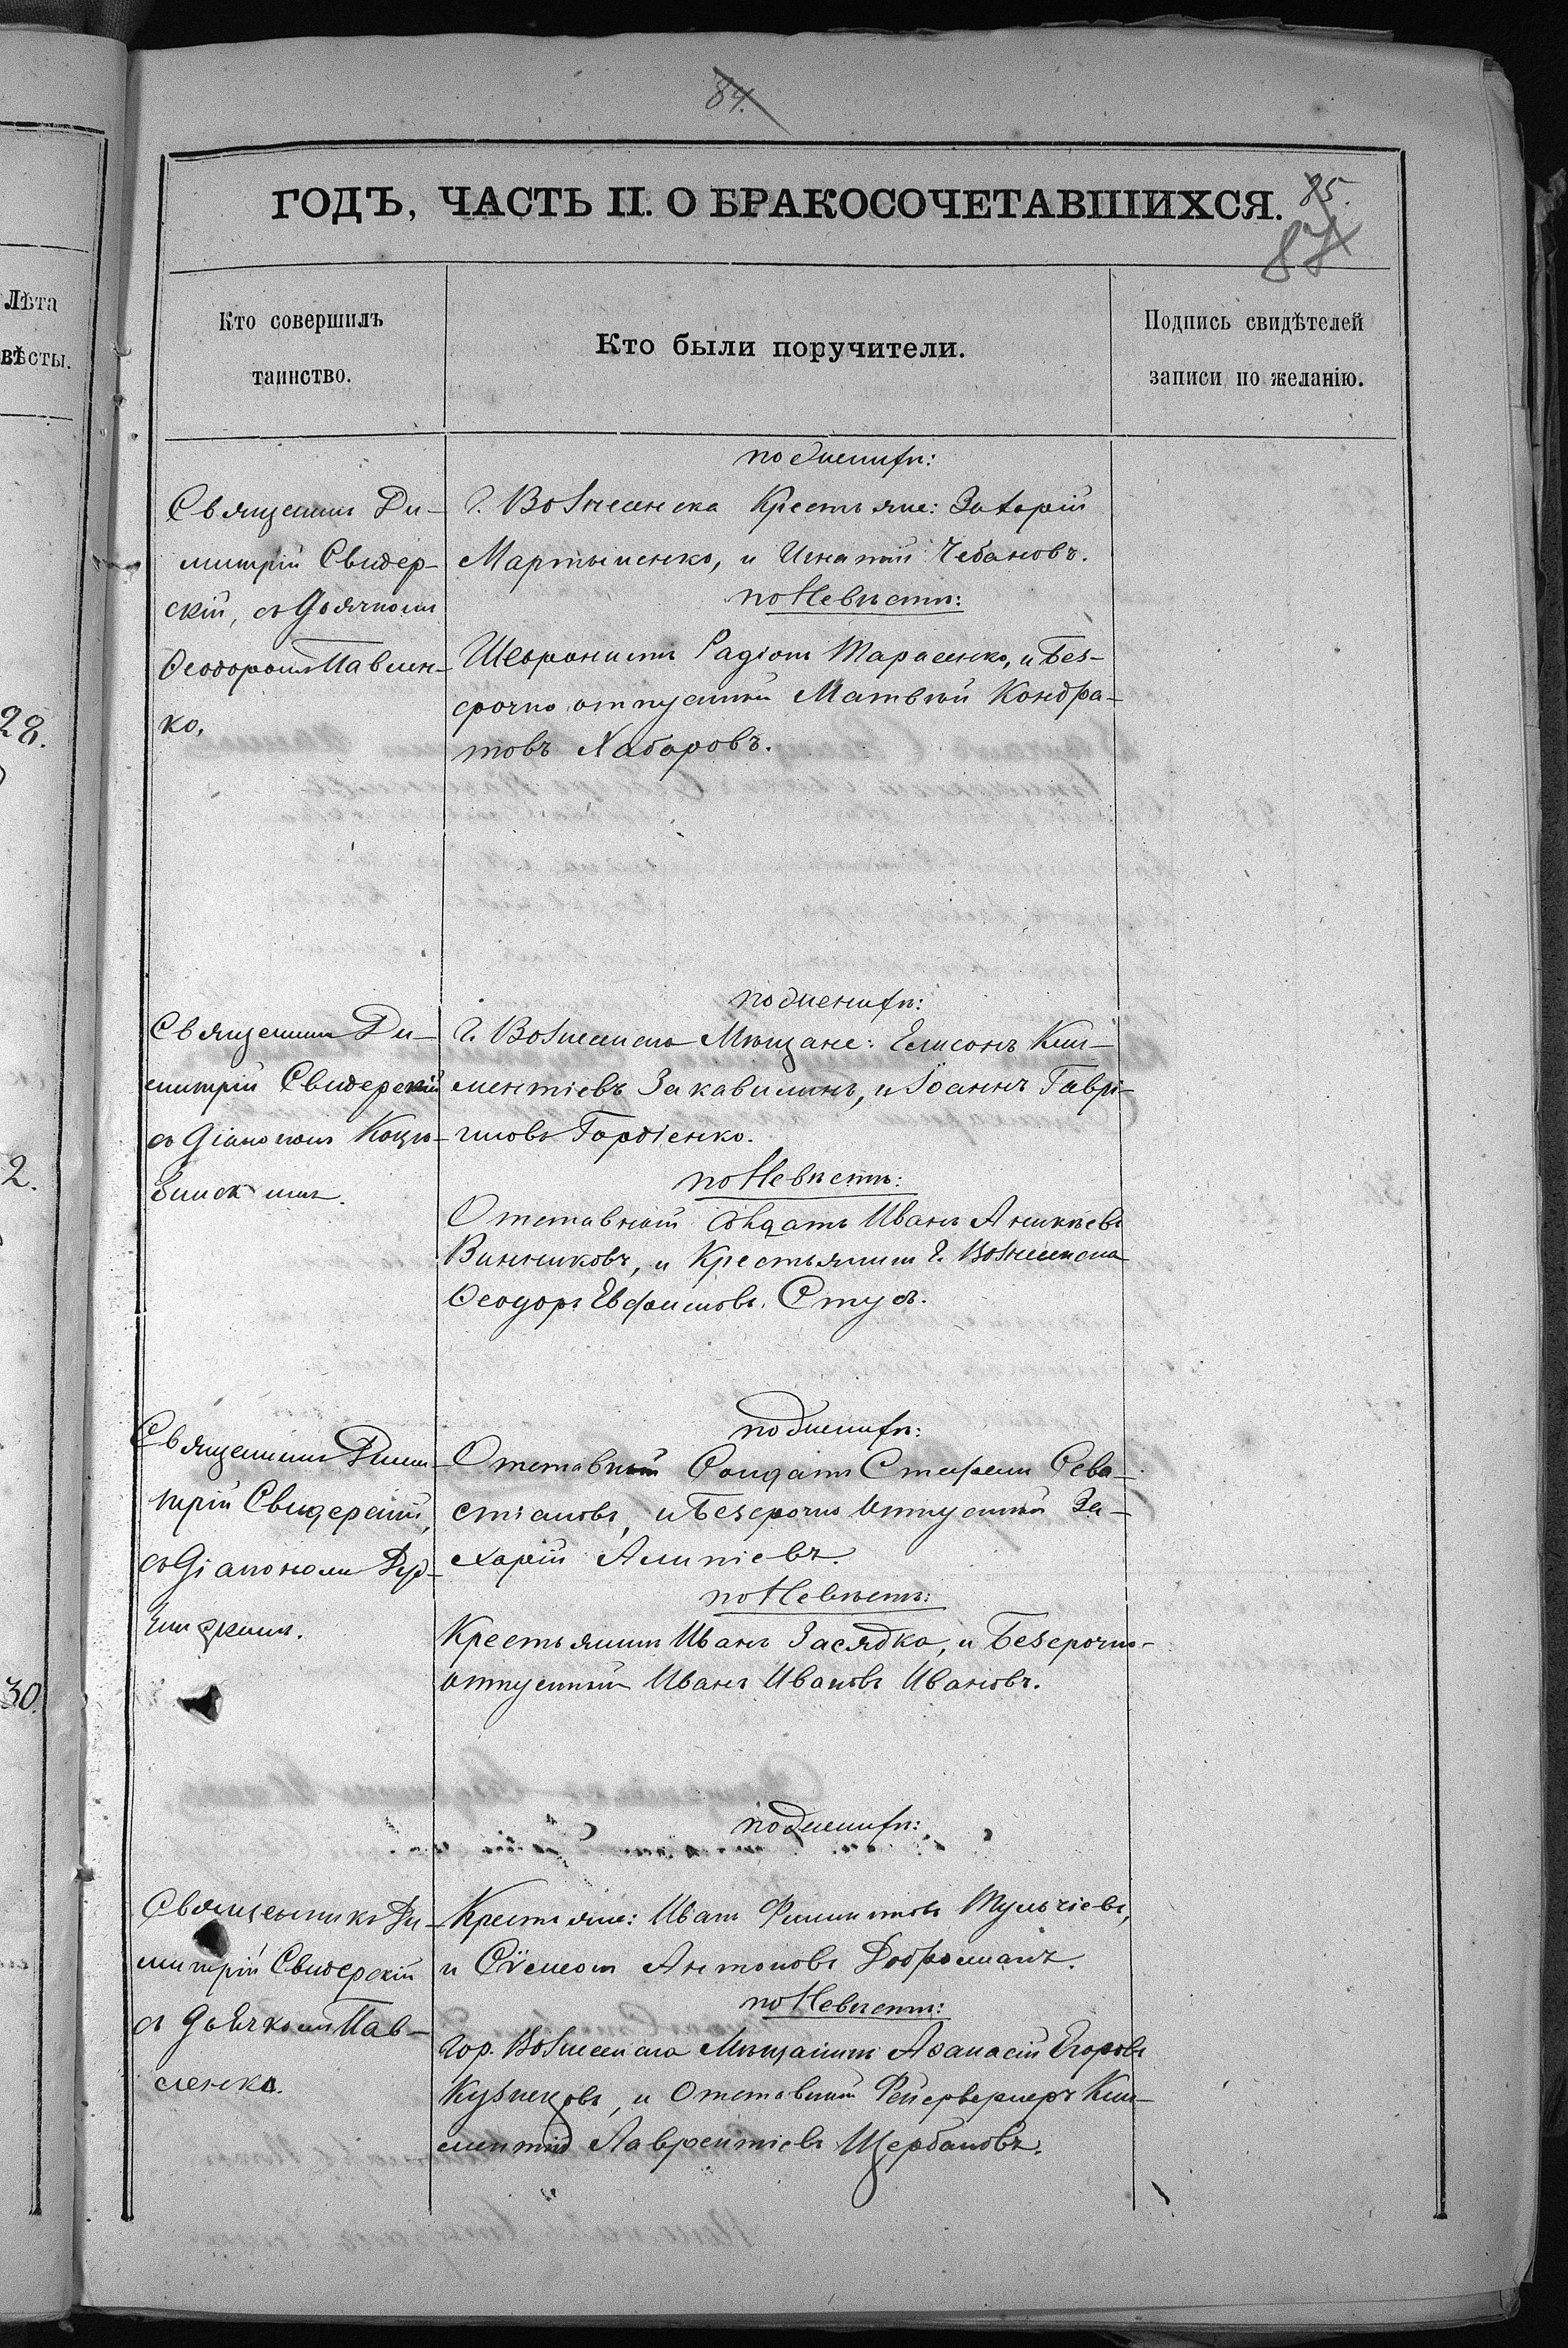 84.
ГОДЪ, ЧАСТЬ II. О БРАКОСОЧЕТАВШИХСЯ.
85.
87
Лѣта
вѣсты.
28.
2.
30.
Кто совершилъ
таинство.
Кто были поручители.
Подпись свидѣтелей
записи по желанію.
Священникъ Ди-
митрій Свидер-
скій, съ Дьячкомъ
Ѳеодоромъ Павлен-
ко.
по Женихѣ:
Г. Вознесенска Крестьяне: Захарій
Мартыненко, и Игнатій Чебановъ.
по Невѣстѣ:
Шевронистъ Радіонъ Тарасенко, и Без-
срочно отпускной Матвѣй Кондра-
товъ Хабаровъ.
Священникъ Ди-
митрій Свидерскій
съ Діакономъ Коцю-
бинскимъ.
по Женихѣ:
Г. Вознесенска Мѣщане: Самсонъ Кли-
ментіевъ Закавилинъ, и Іоаннъ Гаврі-
иловъ Гордіенко.
по Невѣстѣ:
Отставной Солдатъ Иванъ Аникѣевъ
Винниковъ, и Крестьянинъ Г. Вознесенска
Ѳеодоръ Евфимовъ Стусъ.
Священникъ Дими-
трій Свидерскій,
съ Діакономъ
по Женихѣ:
Отставной Солдатъ Стефанъ Сева-
стіановъ, и Безсрочно Отпускной За-
харій Алипіевъ.
по Невѣстѣ:
Крестьянинъ Иванъ Засядко, и Безсрочно-
отпускной Иванъ Ивановъ Ивановъ.
Священникъ Ди-
митрій Свидерскій
съ Дьячкомъ Пав-
ленко.
по Женихѣ:
Крестьяне: Иванъ Филипповъ Тульчіевъ,
и Сѵмеонъ Антоновъ Доброманъ.
по Невѣстѣ:
Гор. Вознесенска Мѣщанинъ Аѳанасій Егоровъ
Кузнецовъ, и Отставной Фейерверкеръ Кли-
ментій Лаврентіевъ Щербановъ.